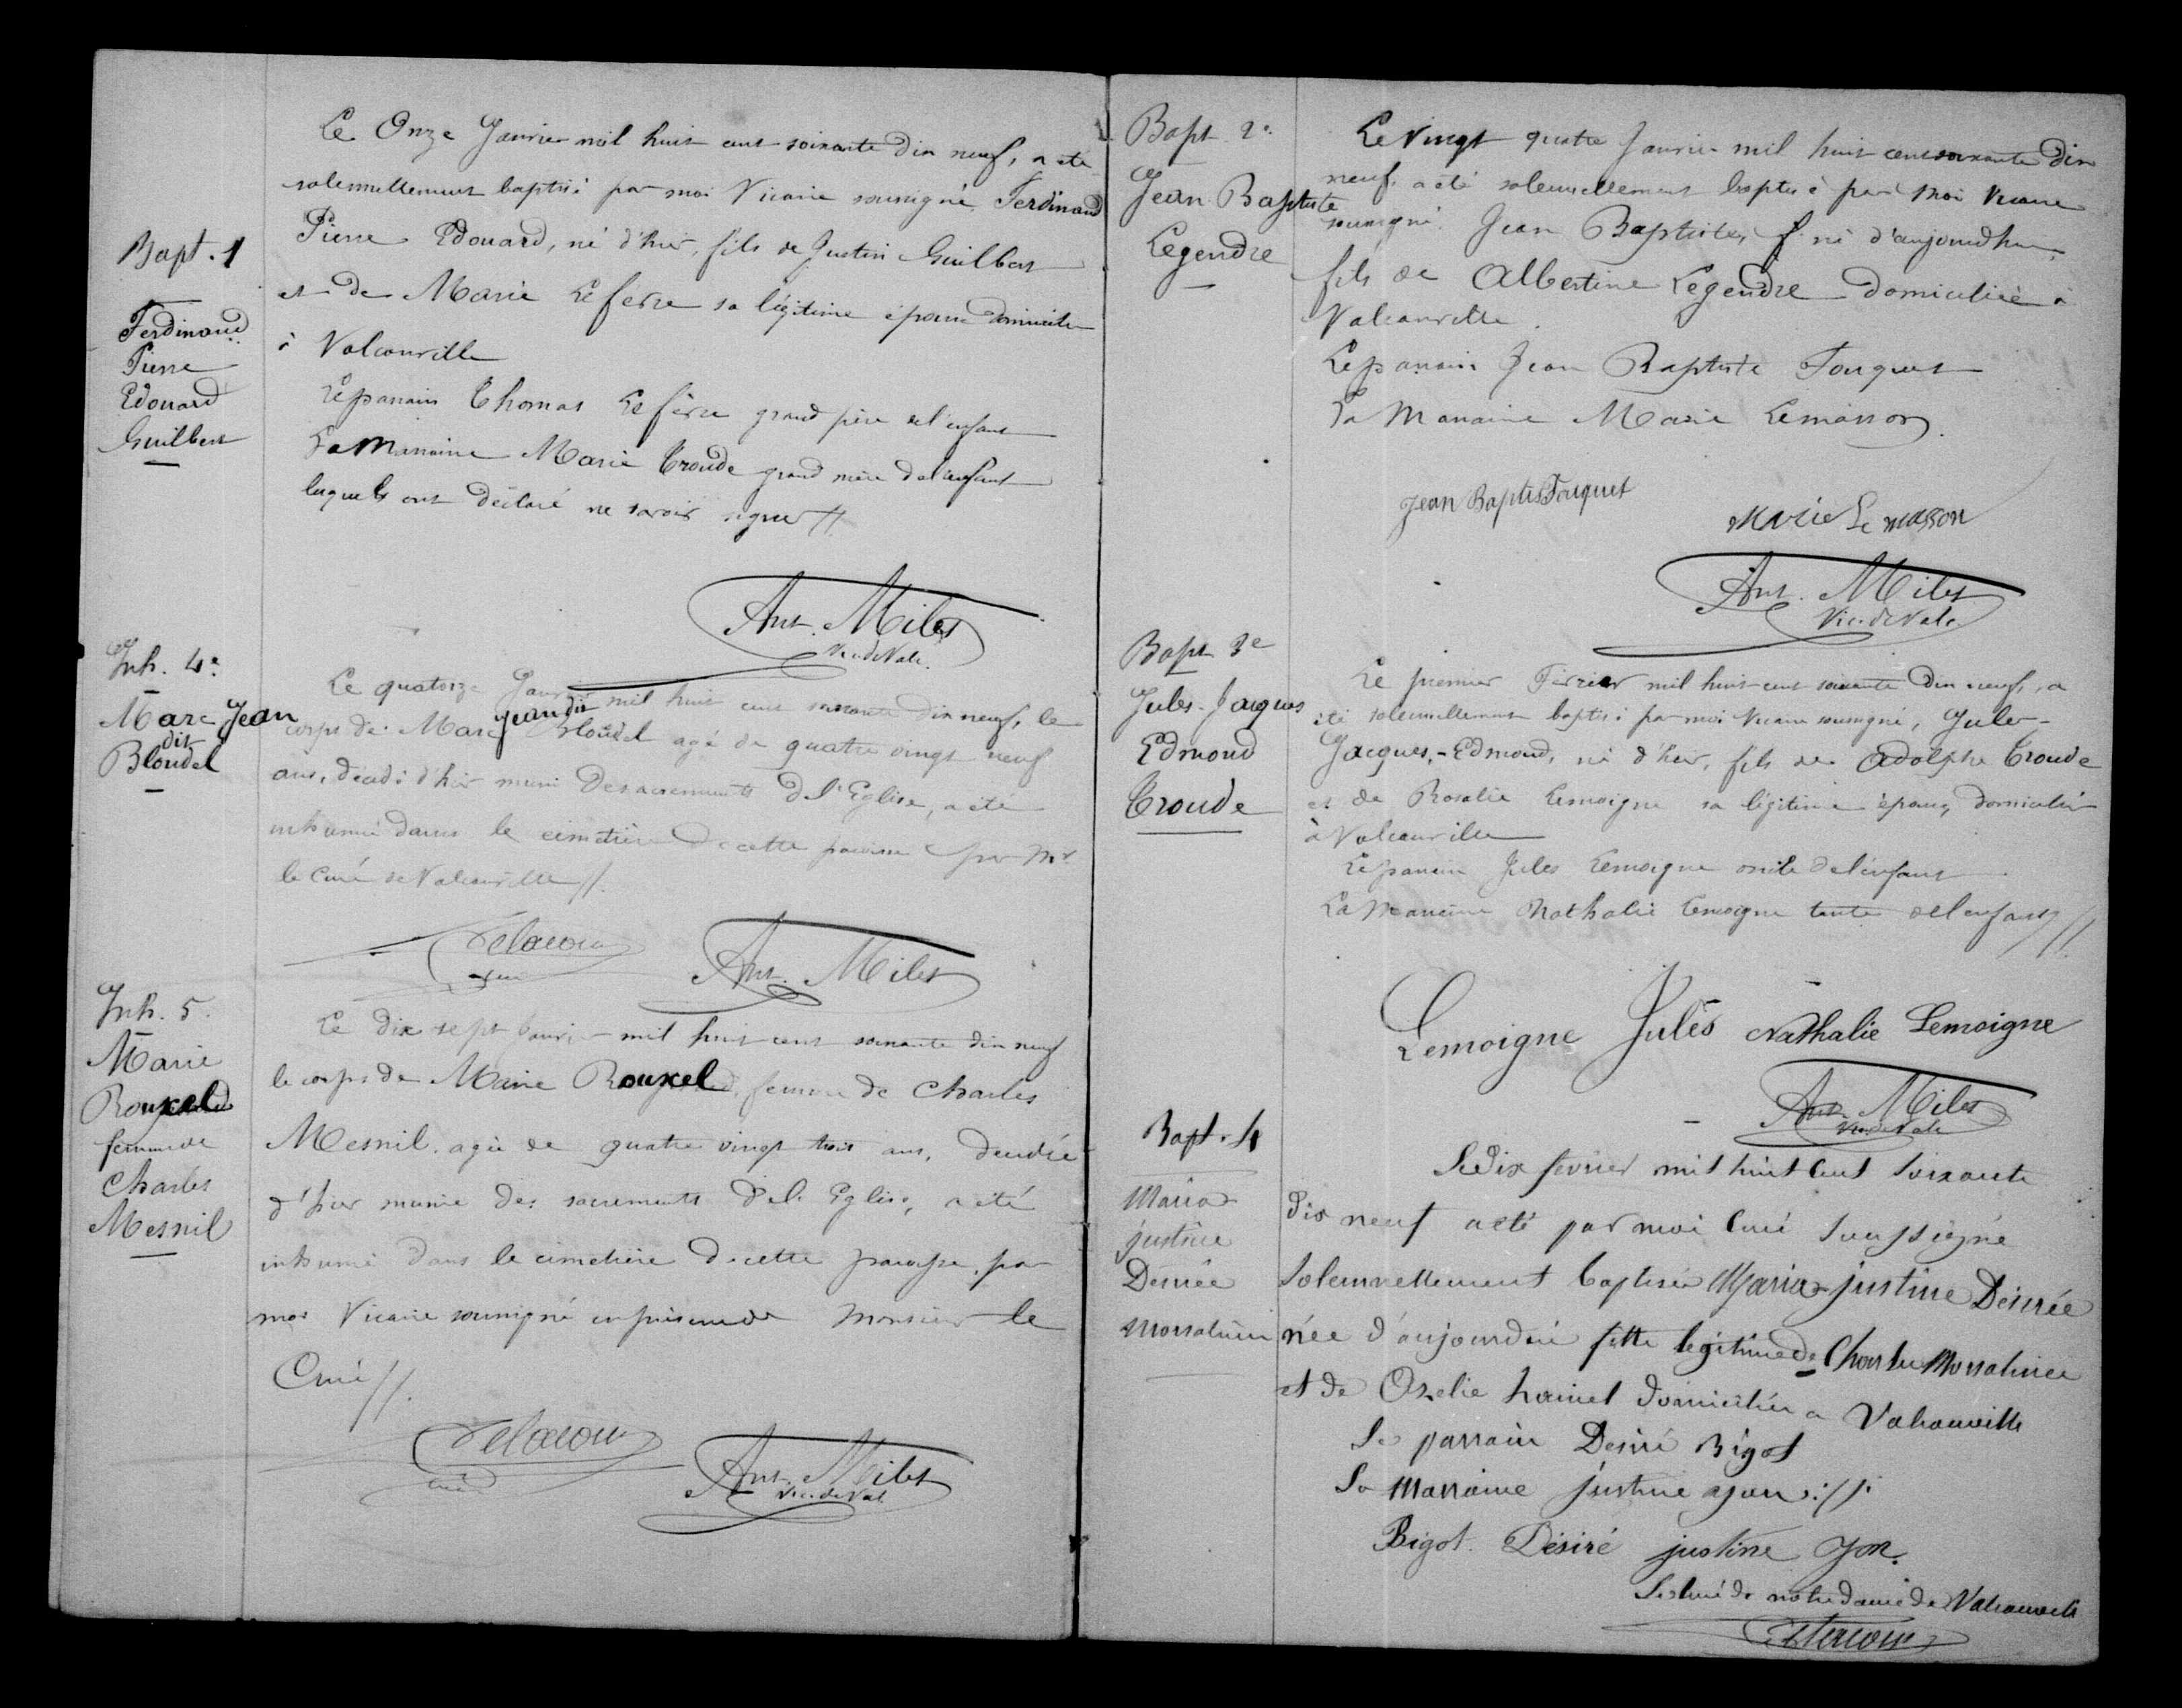 Bapt. 1
Ferdinand
Pierre
Edouard
Guilbert
Le Onze Janvier mil huit cent soixante dix neuf, a été
solennellement baptisé par moi Vicaire soussigné Ferdinand
Pierre Edouard, né d'hier, fils de Justin Guilbert
et de Marie Lefèvre sa légitime épouse domiciliés
à Valcanville
Le parrain Thomas Lefèvre grand père de l'enfant
La Marraine Marie Troude grand mère de l'enfant
lesquels ont déclaré ne savoir signer //.
Ant. Milet
Vic. de Valc.
Inh. 4e
Marc Jean
dit
Blondel
Le quatorze Janvier mil huit cent soixante dix neuf, le
corps de Marc Jean dit Blondel agé de quatre vingt neuf
ans, décédé d'hier muni des sacrements de l'Eglise, a été
inhumé dans le cimetière de cette paroisse par Mr
le Curé de Valcanville //.
Delacour
curé
Ant. Milet
Inh. 5.
Marie
Rouxel
femme de
Charles
Mesnil
Le dix sept Janvier mil huit cent soixante dix neuf
le corps de Marie Rouxel, femme de Charles
Mesnil, agée de quatre vingt trois ans, décédée
d'hier munie des sacrements de l'Eglise, a été
inhumé dans le cimetière de cette paroisse, par
moi Vicaire soussigné en présence de Monsieur le
Curé //.
Delacour
curé
Ant. Milet
Vic. de Val.
Bapt. 2e
Jean Baptiste
Legendre
Le Vingt quatre Janvier mil huit cent soixante dix
neuf, a été solennellement baptisé par moi Vicaire
soussigné. Jean Baptiste, né d'aujourdhui,
fils de Albertine Legendre domiciliée à
Valcanville.
Le parrain Jean Baptiste Fouquet
La Marraine Marie Lemasson.
Jean Baptis Fouquet
Marie Le masson
Ant. Milet
Vic. de Valc.
Bapt. 3e
Jules-Jacques
Edmond
Troude
Le premier Février mil huit cent soixante dix neuf, a
été solennellement baptisé par moi Vicaire soussigné, Jules-
Jacques,-Edmond, né d'hier, fils de Adolphe Troude
et de Rosalie Lemoigne sa légitime épouse, domiciliés
à Valcanville
Le parrain Jules Lemoigne oncle de l'enfant
La Marraine Nathalie Lemoigne tante de l'enfant //.
Lemoigne Jules Nathalie Lemoigne
Ant. Milet
Vic. de Valc
Bapt. 4
Maria
justine
Désirée
Morsalinée
Le Dix fevrier mil huit Cent Soixante
Dix neuf a eté par moi Curé Soussigné
Solennellement baptisée Maria justine Désirée
née d'aujourdui fille légitime de Charles Morsalinée
et de Ozelie hamel domiciliés a Valcanville
Le parrain Desiré Bigot
La Marraine justine
Bigot Désiré justine Yon.
Le Curé de notre dame de Valcanville
Delacour